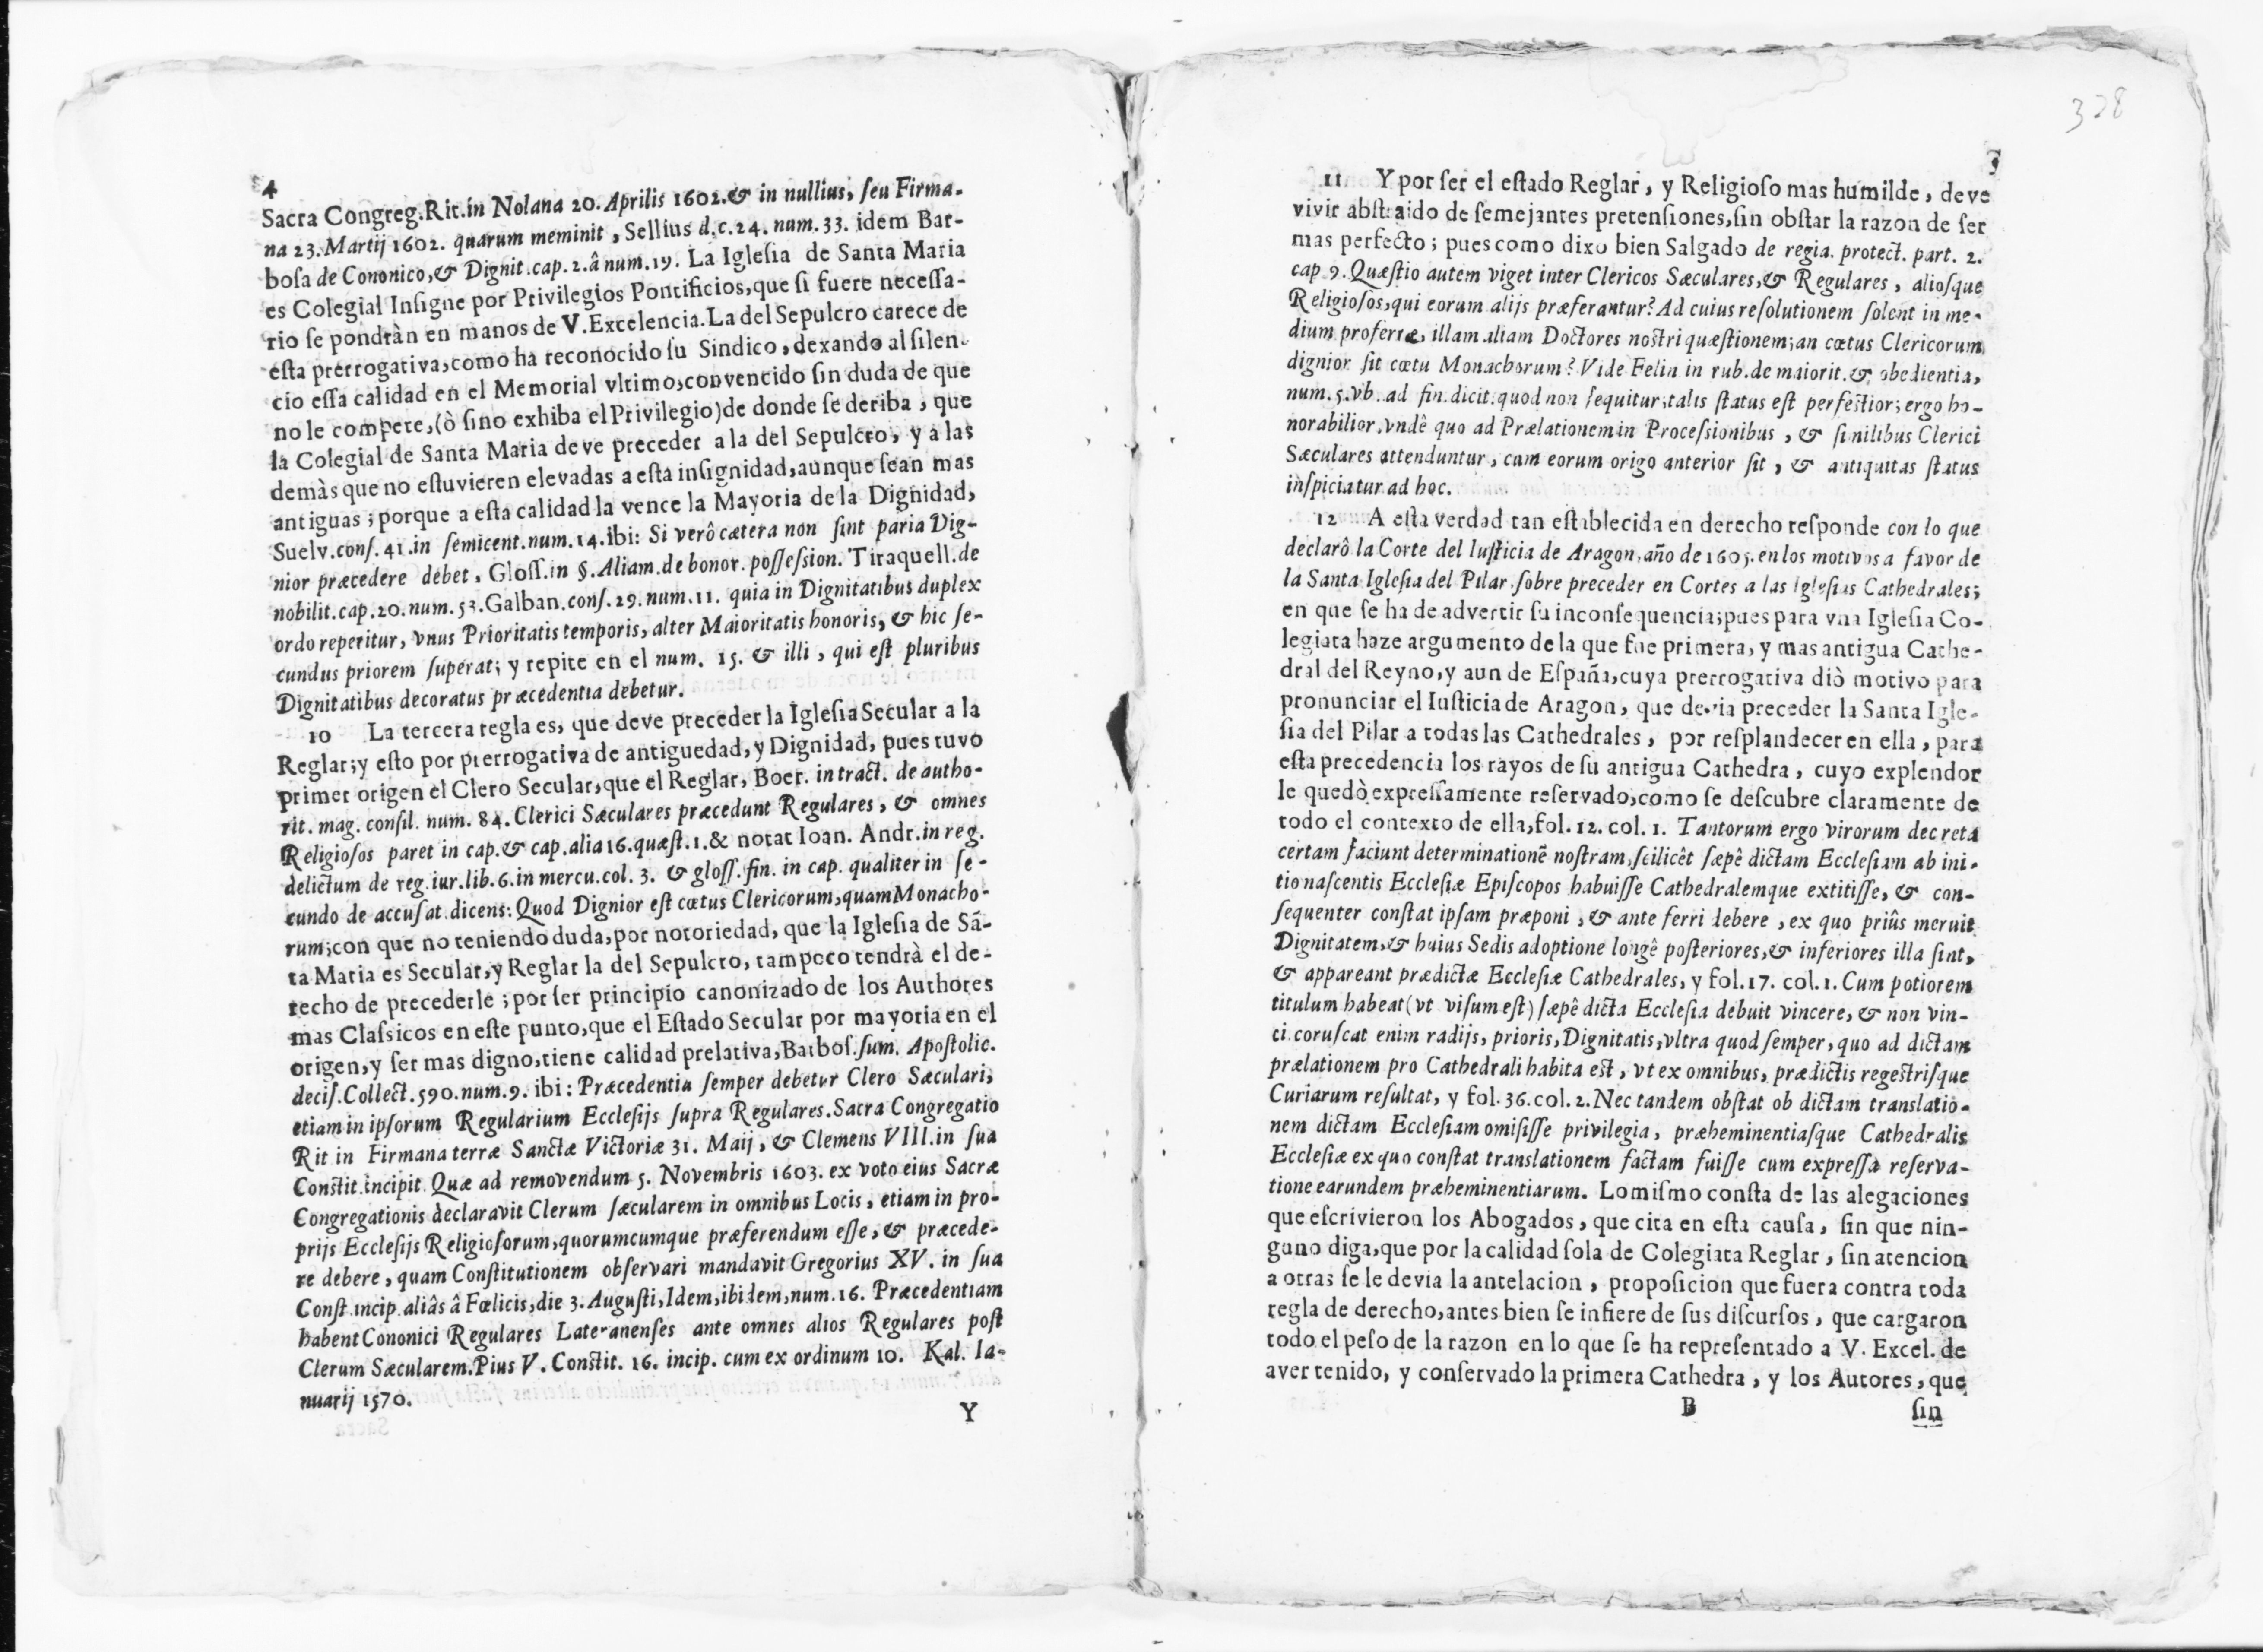 4
Sacra Congreg.Rit.in Nolana 20. Aprilis 1602.& in nullius, ſeu Firma-
na 23.Martij 1602. quarum meminit, Sellius d.c.24. num.33. idem Bar-
boſa de Cononico,& Dignit.cap.2.â num.19. La Igleſia de Santa Maria
es Colegial Inſigne por Privilegios Pontificios,que ſi fuere neceſſa-
rio ſe pondràn en manos de V.Excelencia.La del Sepulcro carece de
eſta prerrogativa,como ha reconocido ſu Sindico, dexando al ſilen-
cio eſſa calidad en el Memorial vltimo,convencido ſin duda de que
no le compete,(ò ſino exhiba el Privilegio)de donde ſe deriba, que
la Colegial de Santa Maria deve preceder a la del Sepulcro, y a las
demàs que no eſtuvieren elevadas a eſta inſignidad,aunque ſean mas
antiguas; porque a eſta calidad la vence la Mayoria de la Dignidad,
Suelv.conſ. 41.in ſemicent.num.14.ibi: Si verô cætera non ſint paria Dig-
nior præcedere debet, Gloſſ.in §.Aliam.de bonor. poſſeſsion. Tiraquell.de
nobilit.cap.20.num.53.Galban.conſ.29.num.11. quia in Dignitatibus duplex
ordo reperitur, vnus Prioritatis temporis, alter Maioritatis honoris, & hic ſe-
cundus priorem ſuperat; y repite en el num. 15. & illi, qui eſt pluribus
Dignitatibus decoratus præcedentia debetur.
10 La tercera regla es, que deve preceder la Igleſia Secular a la
Reglar;y eſto por prerrogativa de antiguedad, y Dignidad, pues tuvo
primer origen el Clero Secular,que el Reglar, Boer. in tract. de autho-
rit. mag. conſil. num. 84. Clerici Sæculares præcedunt Regulares, & omnes
Religioſos paret in cap.& cap.alia 16.quæſt.1.& notat Ioan. Andr.in reg.
delictum de reg.iur.lib.6.in mercu.col. 3. & gloſſ.fin. in cap. qualiter in ſe-
cundo de accuſat.dicens: Quod Dignior eſt cœtus Clericorum,quam Monacho-
rum;con que no teniendo duda,por notoriedad, que la Igleſia de Sã-
ta Maria es Secular,y Reglar la del Sepulcro, tampoco tendrà el de-
recho de precederle ; por ſer principio canonizado de los Authores
mas Claſsicos en eſte punto,que el Eſtado Secular por mayoria en el
origen,y ſer mas digno,tiene calidad prelativa,Barboſ.ſum. Apoſtolic.
deciſ.Collect.590.num.9. ibi: Præcedentia ſemper debetur Clero Sæculari,
etiam in ipſorum Regularium Eccleſijs ſupra Regulares.Sacra Congregatio
Rit in Firmana terræ Sanctæ Victoriæ 31. Maij, & Clemens VIII.in ſua
Conſtit.incipit. Quæ ad removendum 5. Novembris 1603. ex voto eius Sacræ
Congregationis declaravit Clerum ſæcularem in omnibus Locis, etiam in pro-
prijs Eccleſijs Religioſorum,quorumcumque præferendum eſſe, & præcede-
re debere, quam Conſtitutionem obſervari mandavit Gregorius XV. in ſua
Conſt.incip.aliâs â Fœlicis,die 3.Auguſti,Idem,ibidem,num.16. Præcedentiam
habent Cononici Regulares Lateranenſes ante omnes alios Regulares poſt
Clerum Sæcularem.Pius V. Conſtit. 16. incip. cum ex ordinum 10. Kal. Ia-
nuarij 1570.
Y
328
5
11 Y por ſer el eſtado Reglar, y Religioſo mas humilde, deve
vivir abſtraido de ſemejantes pretenſiones,ſin obſtar la razon de ſer
mas perfecto; pues como dixo bien Salgado de regia. protect. part. 2.
cap 9. Quæſtio autem viget inter Clericos Sæculares,& Regulares, alioſque
Religioſos,qui eorum alijs præferantur? Ad cuius reſolutionem ſolent in me-
dium proferre, illam aliam Doctores noſtri quæſtionem;an cœtus Clericorum
dignior ſit cœtu Monachorum? Vide Felin in rub.de maiorit.& obedientia,
num.5.vb. ad fin.dicit.quod non ſequitur;talis ſtatus eſt perfectior; ergo ho-
norabilior,vndê quo ad Prælationem in Proceſsionibus, & ſimilibus Clerici
Sæculares attenduntur, cum eorum origo anterior ſit, & antiquitas ſtatus
inſpiciatur ad hoc.
12 A eſta verdad tan eſtablecida en derecho reſponde con lo que
declarô la Corte del Iuſticia de Aragon,año de 1605.en los motivos a favor de
la Santa Igleſia del Pilar ſobre preceder en Cortes a las Igleſias Cathedrales;
en que ſe ha de advertir ſu inconſequencia;pues para vna Igleſia Co-
legiata haze argumento de la que fue primera, y mas antigua Cathe-
dral del Reyno,y aun de Eſpaña,cuya prerrogativa diò motivo para
pronunciar el Iuſticia de Aragon, que devia preceder la Santa Igle-
ſia del Pilar a todas las Cathedrales, por reſplandecer en ella, para
eſta precedencia los rayos de ſu antigua Cathedra, cuyo explendor
le quedò expreſſamente reſervado,como ſe deſcubre claramente de
todo el contexto de ella,fol.12. col. 1. Tantorum ergo virorum decreta
certam faciunt determinationẽ noſtram,ſcilicêt ſæpê dictam Eccleſiam ab ini-
tio naſcentis Eccleſiæ Epiſcopos habuiſſe Cathedralemque extitiſſe, & con-
ſequenter conſtat ipſam præponi, & ante ferri debere, ex quo priûs meruit
Dignitatem,& huius Sedis adoptione longê poſteriores,& inferiores illa ſint,
& appareant prædictæ Eccleſiæ Cathedrales, y fol.17. col.1. Cum potiorem
titulum habeat (vt viſum eſt) ſæpê dicta Eccleſia debuit vincere, & non vin-
ci.coruſcat enim radijs, prioris,Dignitatis,vltra quod ſemper, quo ad dictam
prælationem pro Cathedrali habita eſt, vt ex omnibus, prædictis regeſtriſque
Curiarum reſultat, y fol.36.col.2.Nec tandem obſtat ob dictam translatio-
nem dictam Eccleſiam omiſiſſe privilegia, præheminentiaſque Cathedralis
Eccleſiæ ex quo conſtat translationem factam fuiſſe cum expreſſa reſerva-
tione earundem præheminentiarum. Lo miſmo conſta de las alegaciones
que eſcrivieron los Abogados, que cita en eſta cauſa, ſin que nin-
guno diga,que por la calidad ſola de Colegiata Reglar, ſin atencion
a otras ſe le devia la antelacion, propoſicion que fuera contra toda
regla de derecho,antes bien ſe infiere de ſus diſcurſos, que cargaron
todo el peſo de la razon en lo que ſe ha repreſentado a V. Excel. de
aver tenido, y conſervado la primera Cathedra, y los Autores, que
B
ſin